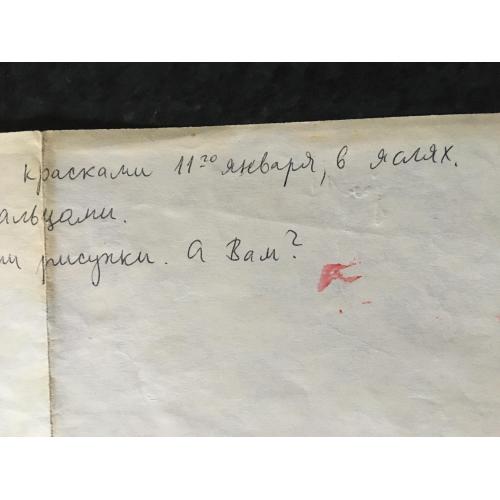 красками 11го января, в яслях.
альцами.
рисунки. А Вам?